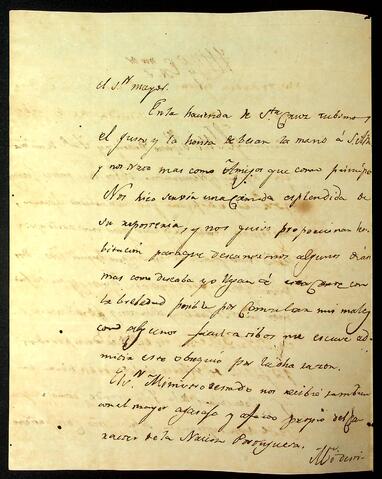 el S.r mayor.
En la hacienda de S.ta Cruz tubimos
el gusto y la honra de besar la mano á S. Alt.
y nos trato mas como Amigos que como principe
Nos hizo servir una Comida esplendida de
su reposteria, y nos quiso proporcionar ha-
bitacion para que descansemos algunos dias
mas como deseaba yo llegar á con
la brebedad posible por Consultar mis males
con algunos facultatibos me escuse ad-
mitir este obsequio por la dha razon.
El S.r Ministro de estado nos recibió tambien
con el mayor agasajo y afecto propio del Ca-
racter de la Nacion Portuguesa.